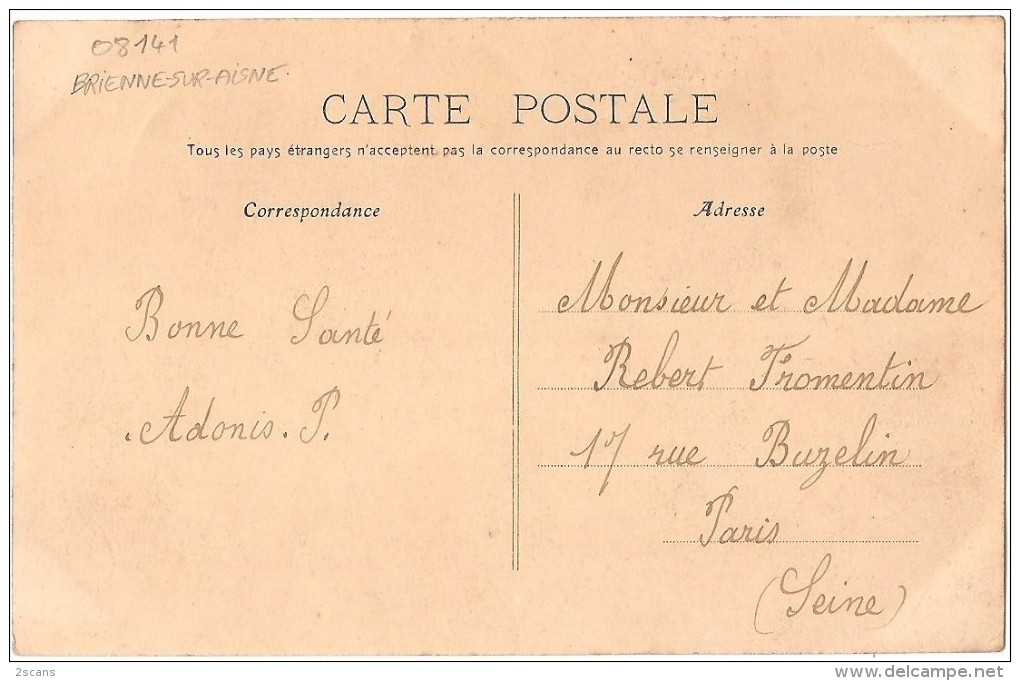 08141
BRIENNE-SUR-AISNE.
CARTE POSTALE
Tous les pays étrangers n'acceptent pas la correspondance au recto se renseigner à la poste
Correspondance
Bonne Santé
Adonis. P.
Adresse
Monsieur et Madame
Rebert Fromentin
17 rue Buzelin
Paris
(Seine)
2scans
delcampe.net